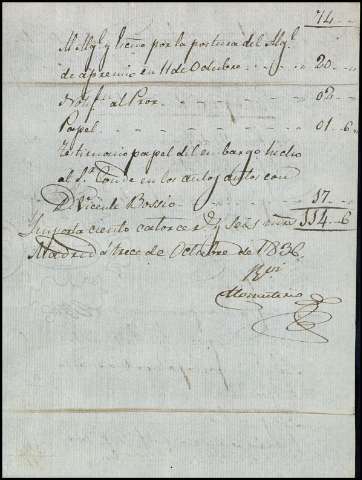 74..
Al Alg.l y Seño por la postura del Alg.l
de apremio en 11 de Octubre .. 20 ..
Not.n al Pror. .. 02 ..
Papel .. 01 .. 6
Testimonio papel del embargo hecho
al S.r Conde en los autos dhos con
D. Vicente Bossio .. 17 ..
Importa ciento catorce r.s y seis mrs 114.. 6
Madrid á trece de Octubre de 1836.